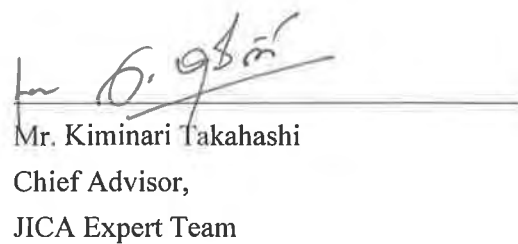 Mr. Kiminari Takahashi
Chief Advisor,
JICA Expert Team